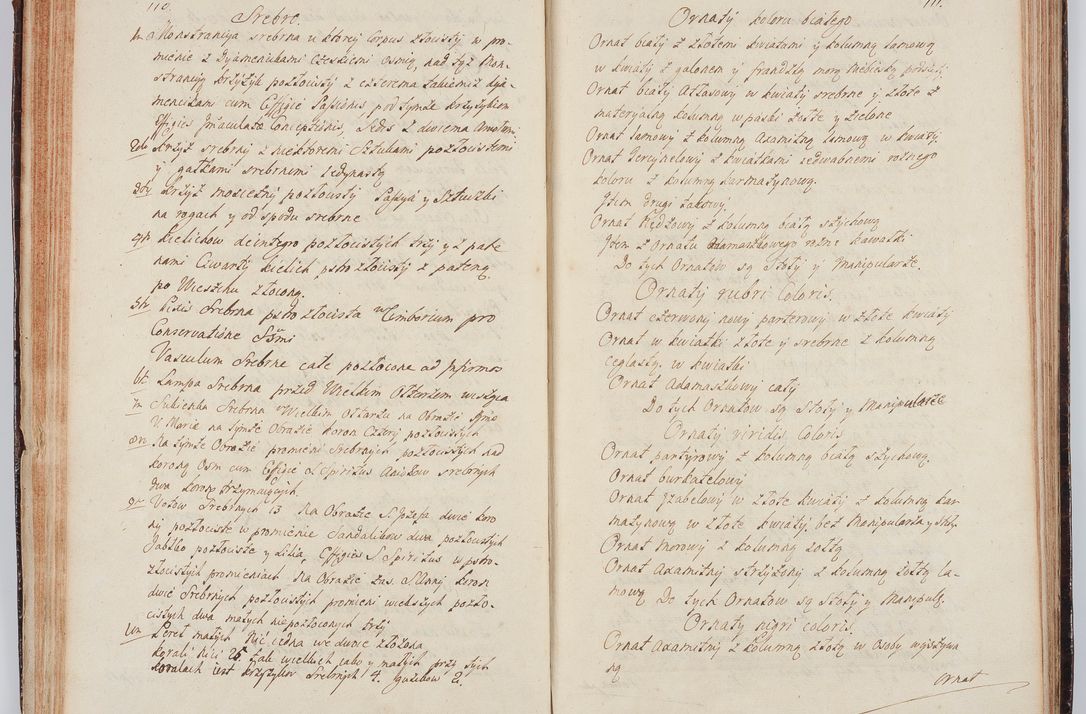 110.
Srebro.
1o Monstrancya srebrna u ktorey Corpus złocisty w pro-
mienie z Dyamencikami Czeskiemi osmią, nad tąż Mon-
strancyą krzyżyk pozłocisty z czterema takiemiż dya-
mencikami cum Effigie Passionis, pod tymże krzyżykiem
Effigies Imaculatae Conceptionis, z dwiema Aniołami
2do Krzyż srebrny z niektoremi sztukami pozłocistemi
y gałkami srebrnemi jedynastą
3tio Krzyż mosiężny pozłocisty Passya y Sztuczki
na rogach y od spodu srebrne
4to Kielichow deintegro pozłocistych trzy y z pate
nami Czwarty kielich pstro złocisty z pateną
po Wierzchu złoconą.
5to Puszka Srebrna pstro złocista Cimborium pro
Conservatione SSmi
Vasculum Srebrne całe pozłocone ad Infirmos
6to Lampa Srebrna przed Wielkim Ołtarzem wisząca
7mo Sukienka Srebrna Wielkim Ołtarzu na Obrazie
N Marie na tymże Obrazie Koron Cztery pozłocistych
8vo Na tymże Obrazie promieni Srebrnych pozłocistych nad
koroną Osm cum Effigie S. Spiritus Aniołow srebrnych
dwa koronę trzymaiących
9no Votow Srebrnych 13. Na Obrazie S. Jozefa dwie koro
ny pozłociste w promienie Sandalikow dwa pozłocistych
Jabłko pozłociste y Lilia, Effigies S. Spiritus w pstro-
złocistych promieniach Na Obrazie zas S. Anny koron
dwie Srebrnych pozłocistych promieni większych pozło-
cistych dwa małych niepozłoconych trzy
10mo Pereł małych nić jedna we dwoie złożona
korali nici 25 tak wielkich jako y małych przy tych
koralach iest krzyżykow Srebrnych 4. 2.
111.
Ornaty koloru białego
Ornat biały z złotemi kwiatami y kolumną lamową
w kwiaty z galonem y frandzlą morą Niebieską podszyty
Ornat biały Atłasowy w kwiaty srebrne y złote z
materyalną kolumną w paski żołte y zielone
Ornat lamowy z kolumną Adamitną lamową w kwiaty.
Ornat Gercynelowy z kwiatkami iedwabnemi rożnego
koloru z kolumną karmazynową.
Item drugi takowy
Ornat Kędzowy z kolumną białą sztychową
Item z Ornatu Adamaszkowego rożne kawałki
Do tych Ornatow są Stoły y Manipularze.
Ornaty rubri Coloris.
Ornat czerwony nowy parterowy w złote kwiaty
Ornat w kwiatki złote y srebrne z kolumną
ceglastą. w kwiatki
Ornat Adamaszkowy cały
Do tych Ornatow są Stoły y Manipularze
Ornaty viridis Coloris
Ornat partyrowy z kolumną białą sztychową.
Ornat burkatelowy
Ornat Izabelowy w złote kwiaty z kolumną kar
mazynową w złote kwiaty. bez Manipularza y Stuły.
Ornat Morowy z kolumną żołtą
Ornat Adamitny strzyżony z kolumną żołtą la-
mową Do tych Ornatow są Stoły y Manipul.
Ornaty nigri coloris.
Ornat Adamitny z kolumną złotą w osoby wyszywa
ną
Ornat